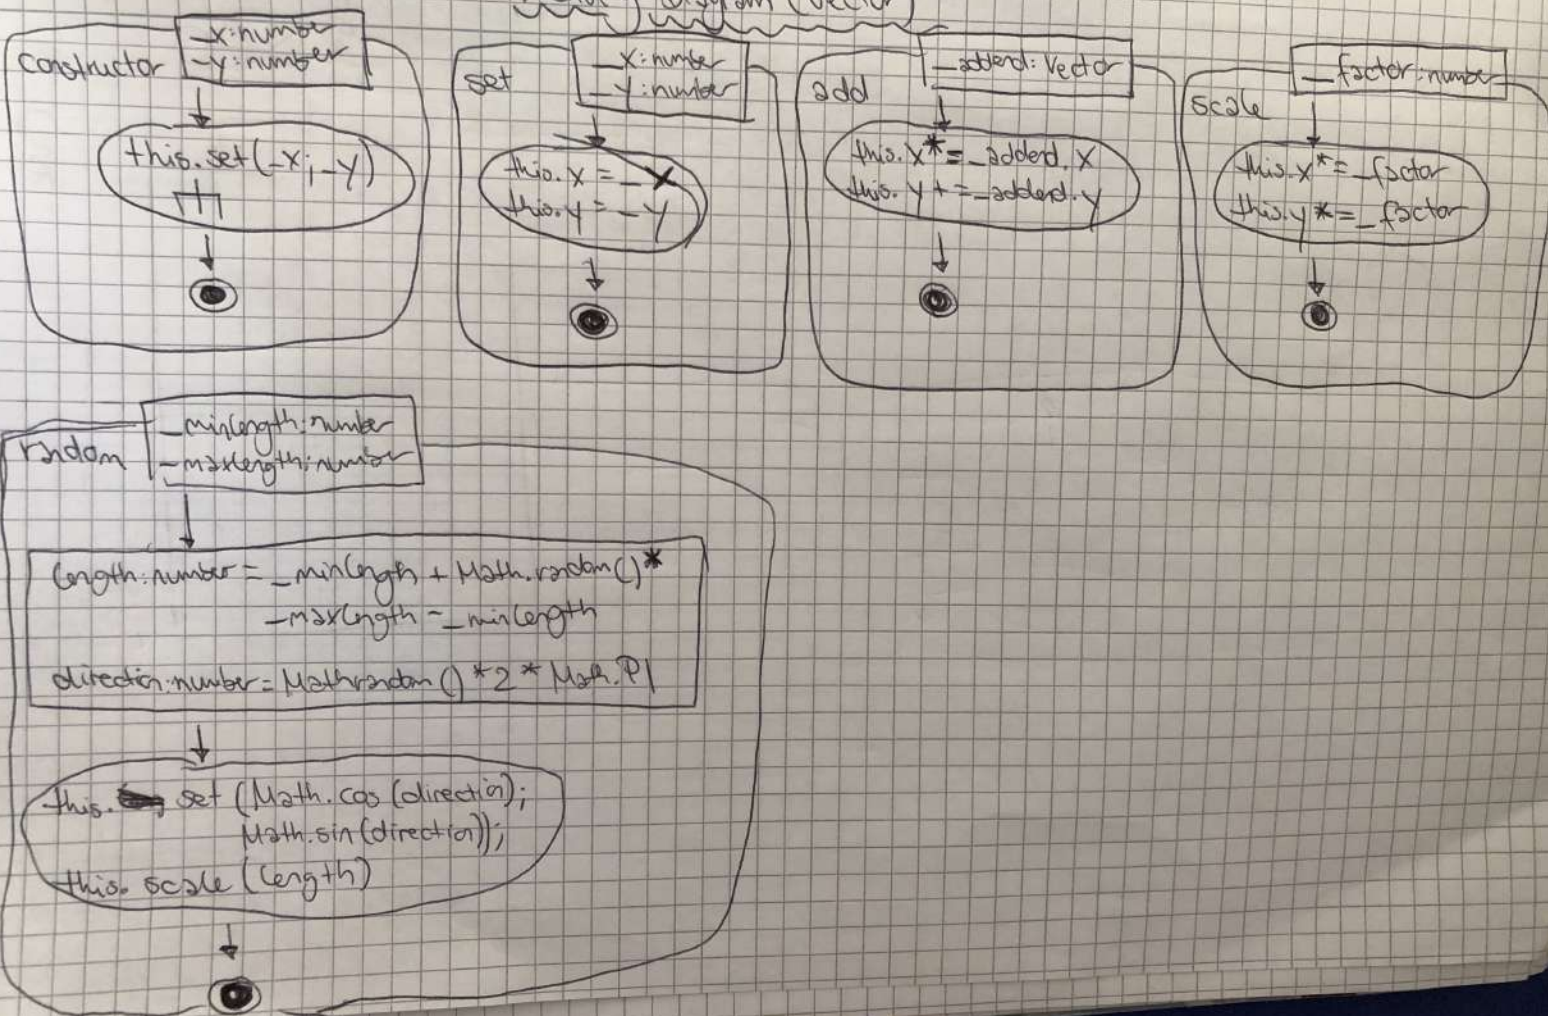 Diagram (Vector)
constructor
_x:number
_y:number
this.set(_x;_y)
set
_x:number
_y:number
this.x = _x
this.y = _y
add
_addend: Vector
this.x*=_addend.x
this.y+=_addend.y
scale
_factor:number
this.x*=_factor
this.y*=_factor
random
_minlength:number
_maxlength:number
length:number = _minlength + Math.random()*
_maxlength - _minlength
direction:number = Math.random()*2*Math.PI
this. set (Math.cos(direction);
Math.sin(direction));
this. scale (length)